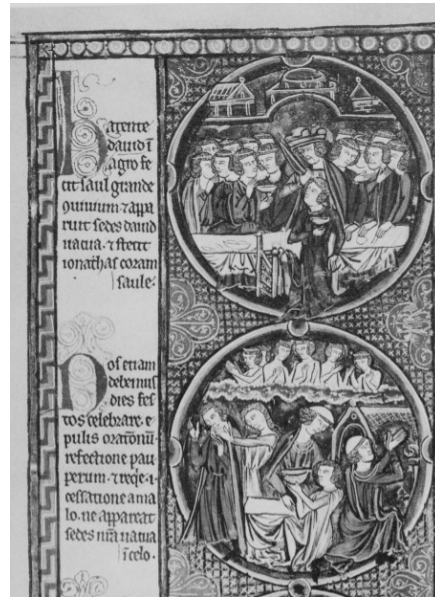 Latente
dauid ī
agro fe
cit saul grande
ꝯuiuium ⁊ appa
ruit sedes dauid
uacua. ⁊ stetit
ionathas coram
saule.
Nos etiam
debemus
dies fes
tos celebrare. e
pulis orationū.
refectione pau
perum. ⁊ reqͥe. ī
cessatione a ma
lo. ne appareat
sedes nr̄a uacua
ī celo.